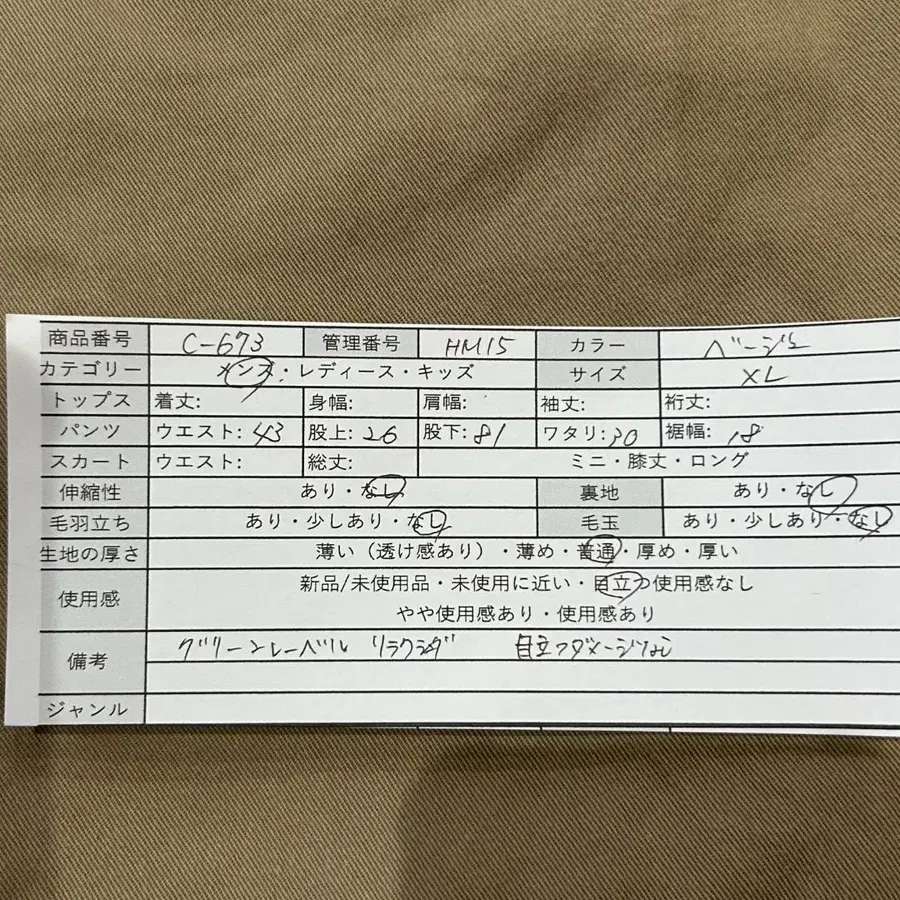 商品番号 C-673 管理番号 HM15 カラー ベージュ
カテゴリー メンズ・レディース・キッズ サイズ XL
トップス 着丈: 身幅: 肩幅: 袖丈: 裄丈:
パンツ ウエスト: 43 股上: 26 股下: 81 ワタリ: 30 裾幅: 18
スカート ウエスト: 総丈: ミニ・膝丈・ロング
伸縮性 あり・なし 裏地 あり・なし
毛羽立ち あり・少しあり・なし 毛玉 あり・少しあり・なし
生地の厚さ 薄い（透け感あり）・薄め・普通・厚め・厚い
使用感 新品/未使用品・未使用に近い・目立つ使用感なし
やや使用感あり・使用感あり
備考 グリーンレーベル リラクシグ 目立つダメージなし
ジャンル